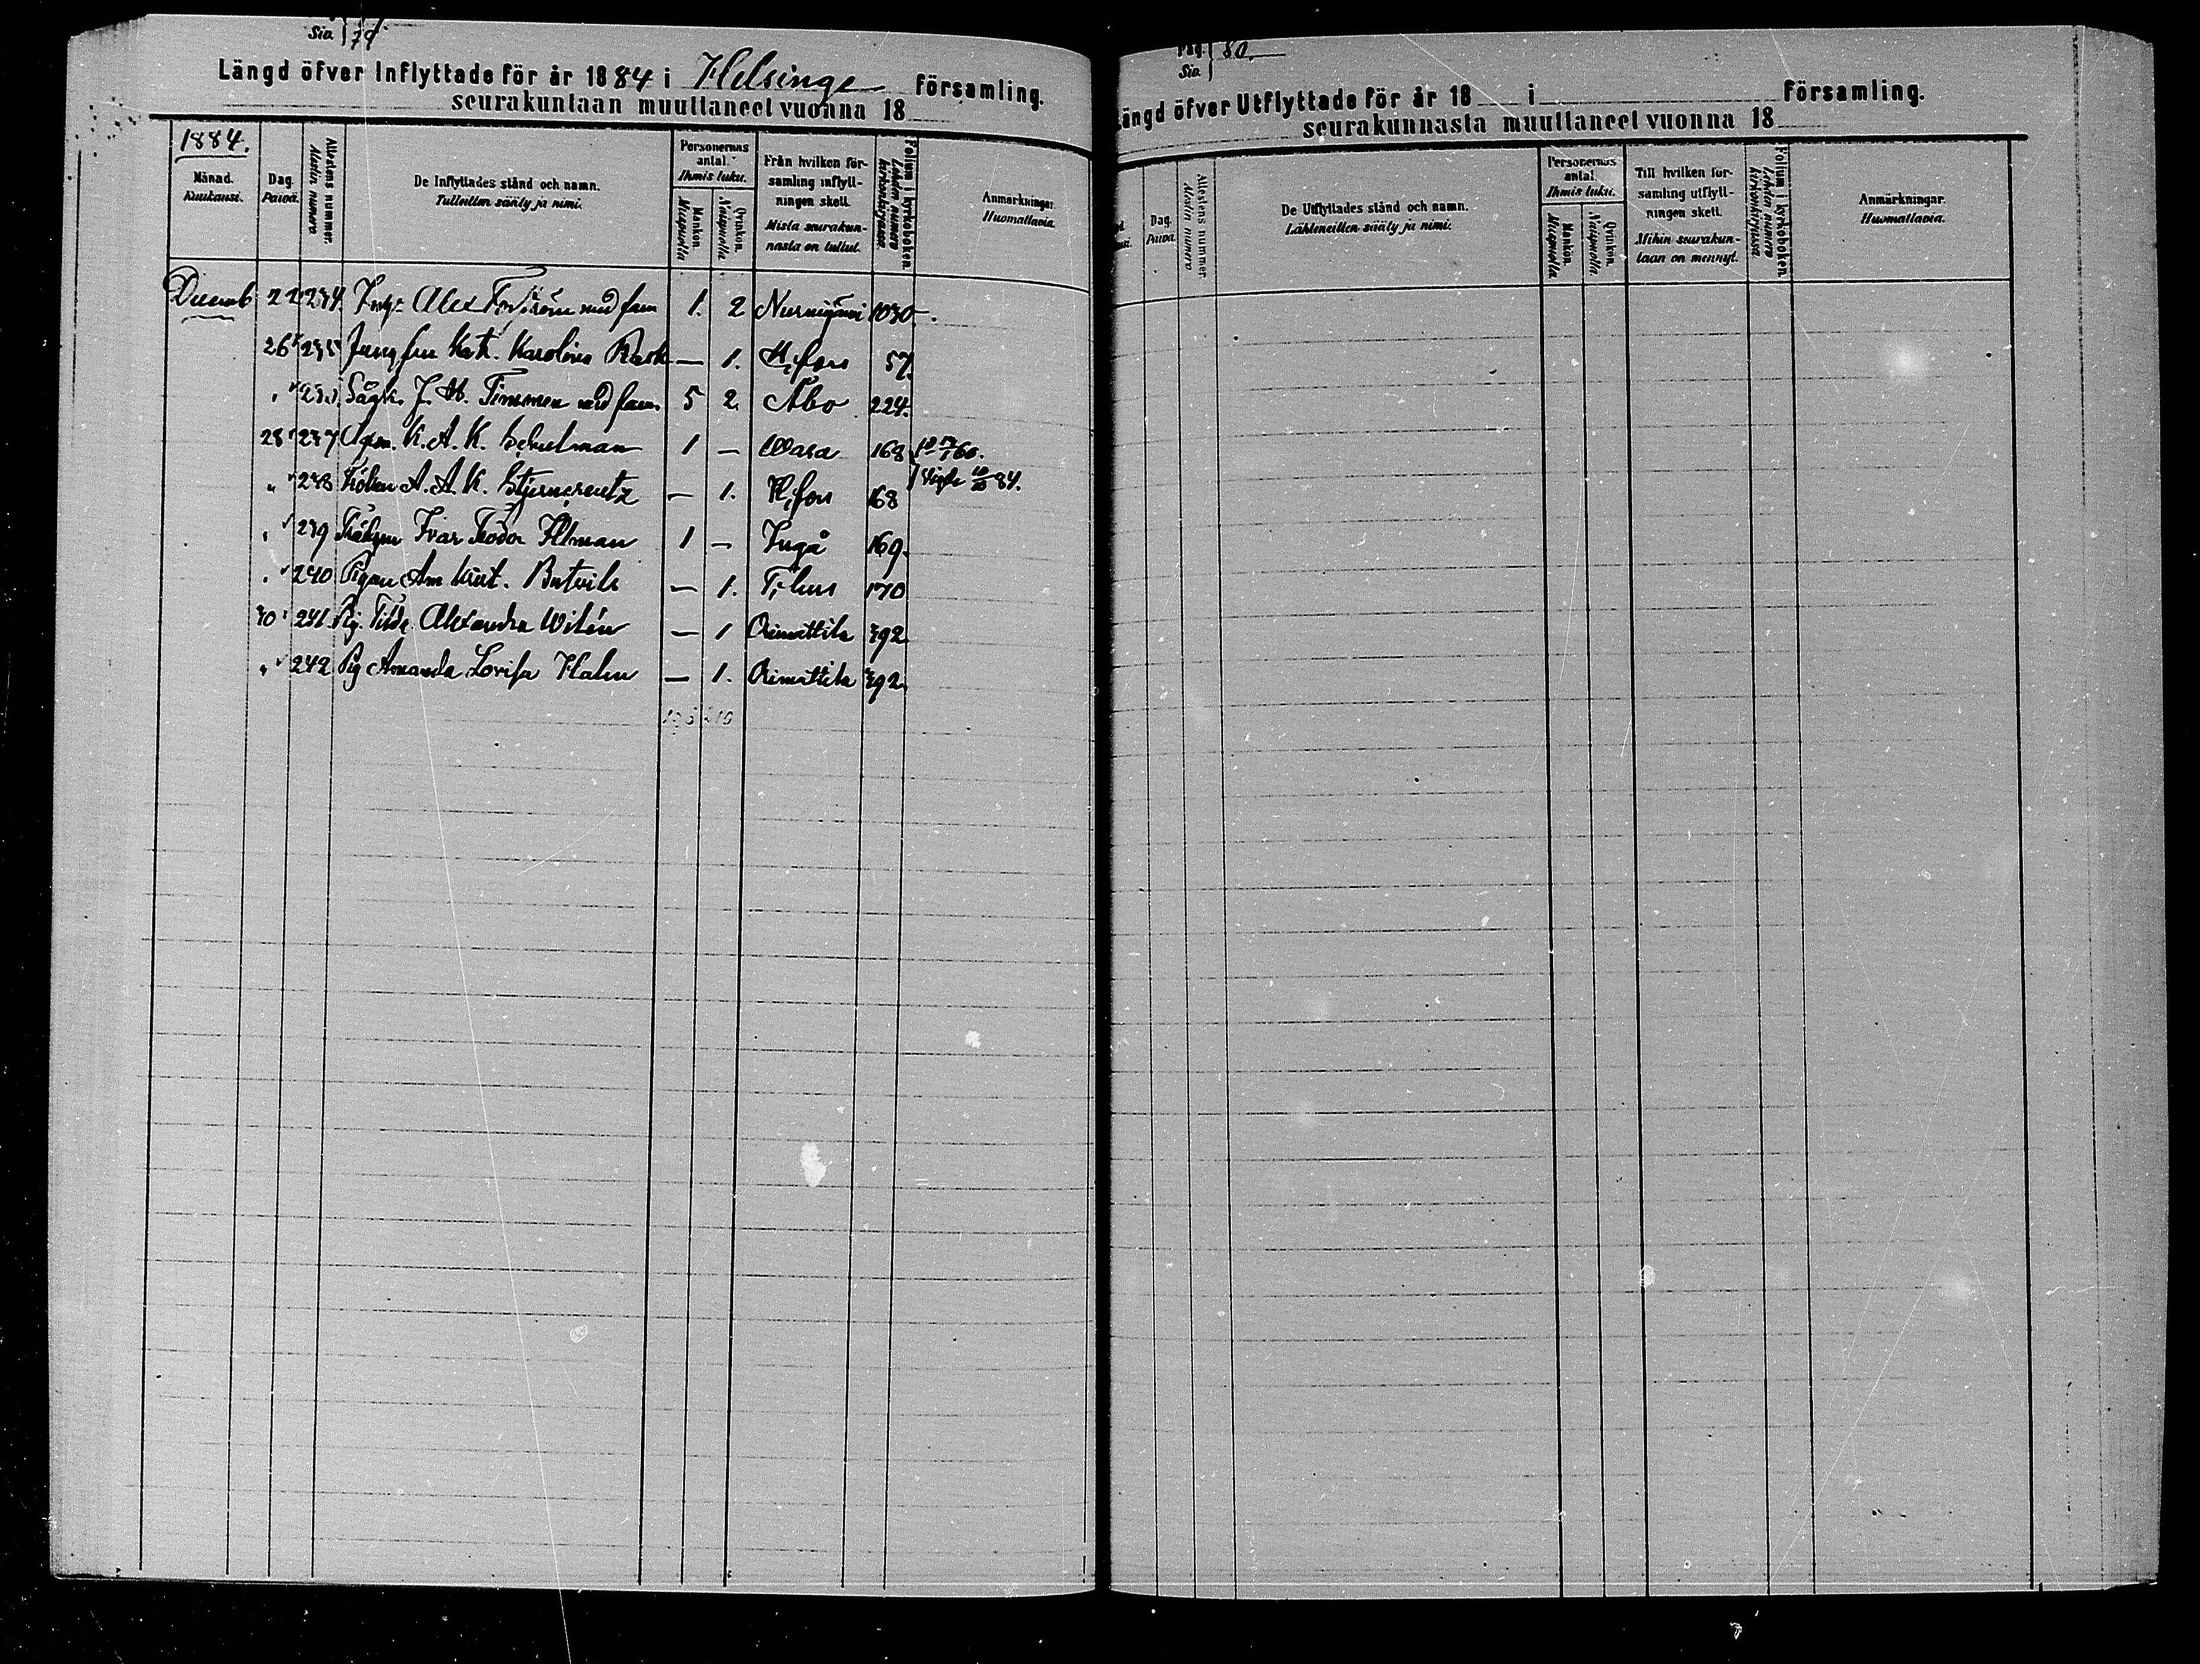 Siv. 79
Längd öfver Inflyttade för år 1884 i Helsinge församling.
seurakuntaan muuttaneet vuonna 18
1884.
Månad. Kuukausi.
Dag. Päivä.
Attestens nummer. Alestin numero
De Inflyttades stånd och namn. Tulleitten sääty ja nimi.
Personernas antal. Ihmis luku.
Mankön. Miespuolia
Qvinkön. Naispuolia
Från hvilken församling inflyttningen skett. Mista seurakunnasta on tullut.
Folium i kyrkoboken. Lehden numero kirkonkirjassa.
Anmärkningar. Huomattavia.
Decemb 22 234. Alex med fam 1. 2 Nurmijärvi 1030.
26 235 Jungfru Kat. Karolina Rask — 1. H,fors 57.
" Sågk. J. H. Timmen med fam. 5 2. Åbo 224.
28 237 K. A. K. Schulman 1 — Wasa 168
" 238 Fröken A. A. K. Stjerncreutz — 1. H,fors 168 Vigde 84.
" 239 Ivar Teodor 1 — Ingå 169.
" 240 Pigan — 1. T,hus 170
30 241 Pig. Tilda Alexandra Wilén — 1 Orimattila 392
" 242 Pig Amanda Lovisa Halm — 1. Orimattila 392
Pag. Siv. 80.
Längd öfver Utflyttade för år 18 i församling.
seurakunnasta muuttaneet vuonna 18
Dag. Päivä
Attestens nummer. Alestin numero
De Utflyttades stånd och namn. Lähteneitten sääty ja nimi.
Personernas antal. Ihmis luku.
Mankön. Miespuolia
Qvinkön. Naispuolia
Till hvilken församling utflyttningen skett. Mihin seurakuntaan on mennyt.
Folium i kyrkoboken. Lehden numero kirkonkirjassa
Anmärkningar. Huomattavia.